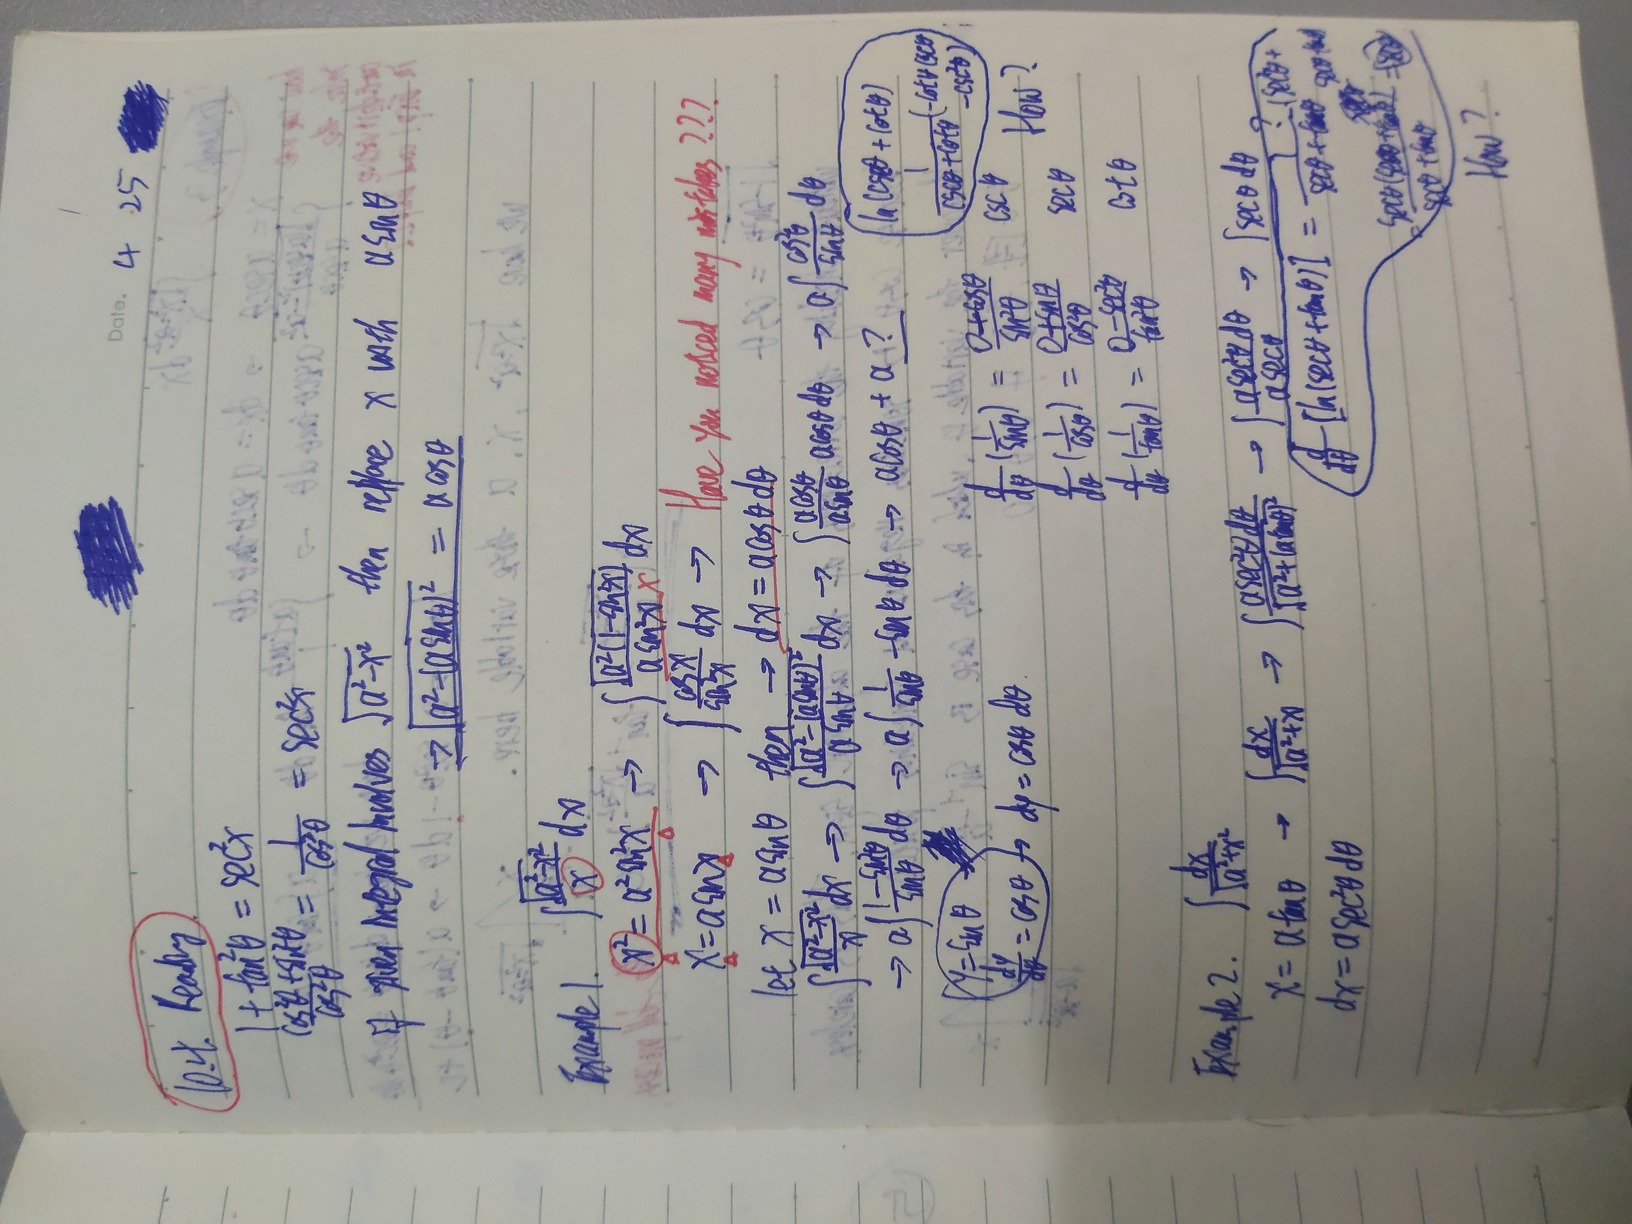 Date. 4 25
10.4. Reading
1 + tan²θ = sec²x
(cos²θ + sin²θ)/cos²θ = 1/cos²θ = sec²x
If given integral involves √(a²-x²) then replace x with a sinθ
→ √(a²-(a sinθ)²) = a cosθ
Example 1. ∫ √(a²-x²)/x dx
x² = a² sin²x → ∫ √(a²(1-sin²x))/(a sin²x) x dx
x = a sinx → ∫ cosx/sin²x dx → Have you noticed many mistakes ???
let x = a sinθ then → dx = a cosθ dθ
∫ √(a²-x²)/x dx → ∫ √(a²-(a sinθ)²)/(a sinθ) dx → ∫ (a cosθ)/(a sinθ) a cosθ dθ → a∫ cos²θ/sinθ dθ
→ a∫ (1-sin²θ)/sinθ dθ → a∫ 1/sinθ - sinθ dθ → a cosθ + a ?
ln(cscθ + cotθ)
1/(cscθ + cotθ) (-cotθ cscθ - csc²θ)
How?
y = sinθ
dy/dθ = cosθ → dy = cosθ dθ.
d/dθ (1/sinθ) = (0 + cosθ)/sin²θ cscθ
d/dθ (1/cosθ) = (0 + sinθ)/cos²θ secθ
d/dθ (1/tanθ) = (0 - sec²θ)/tan²θ cotθ
Example 2. ∫ dx/√(a²+x²)
x = a tanθ → ∫ dx/√(a²+x) → ∫ (a sec²θ dθ)/√(a²+(a tanθ)²) → ∫ (a sec²θ dθ)/(a secθ) → ∫ secθ dθ ?
dx = a sec²θ dθ
d/dθ [ln(secθ + tanθ)] = 1/(secθ + tanθ) · (sec²θ + secθ tanθ)
= secθ(secθ + tanθ)/(secθ + tanθ) = secθ
How?